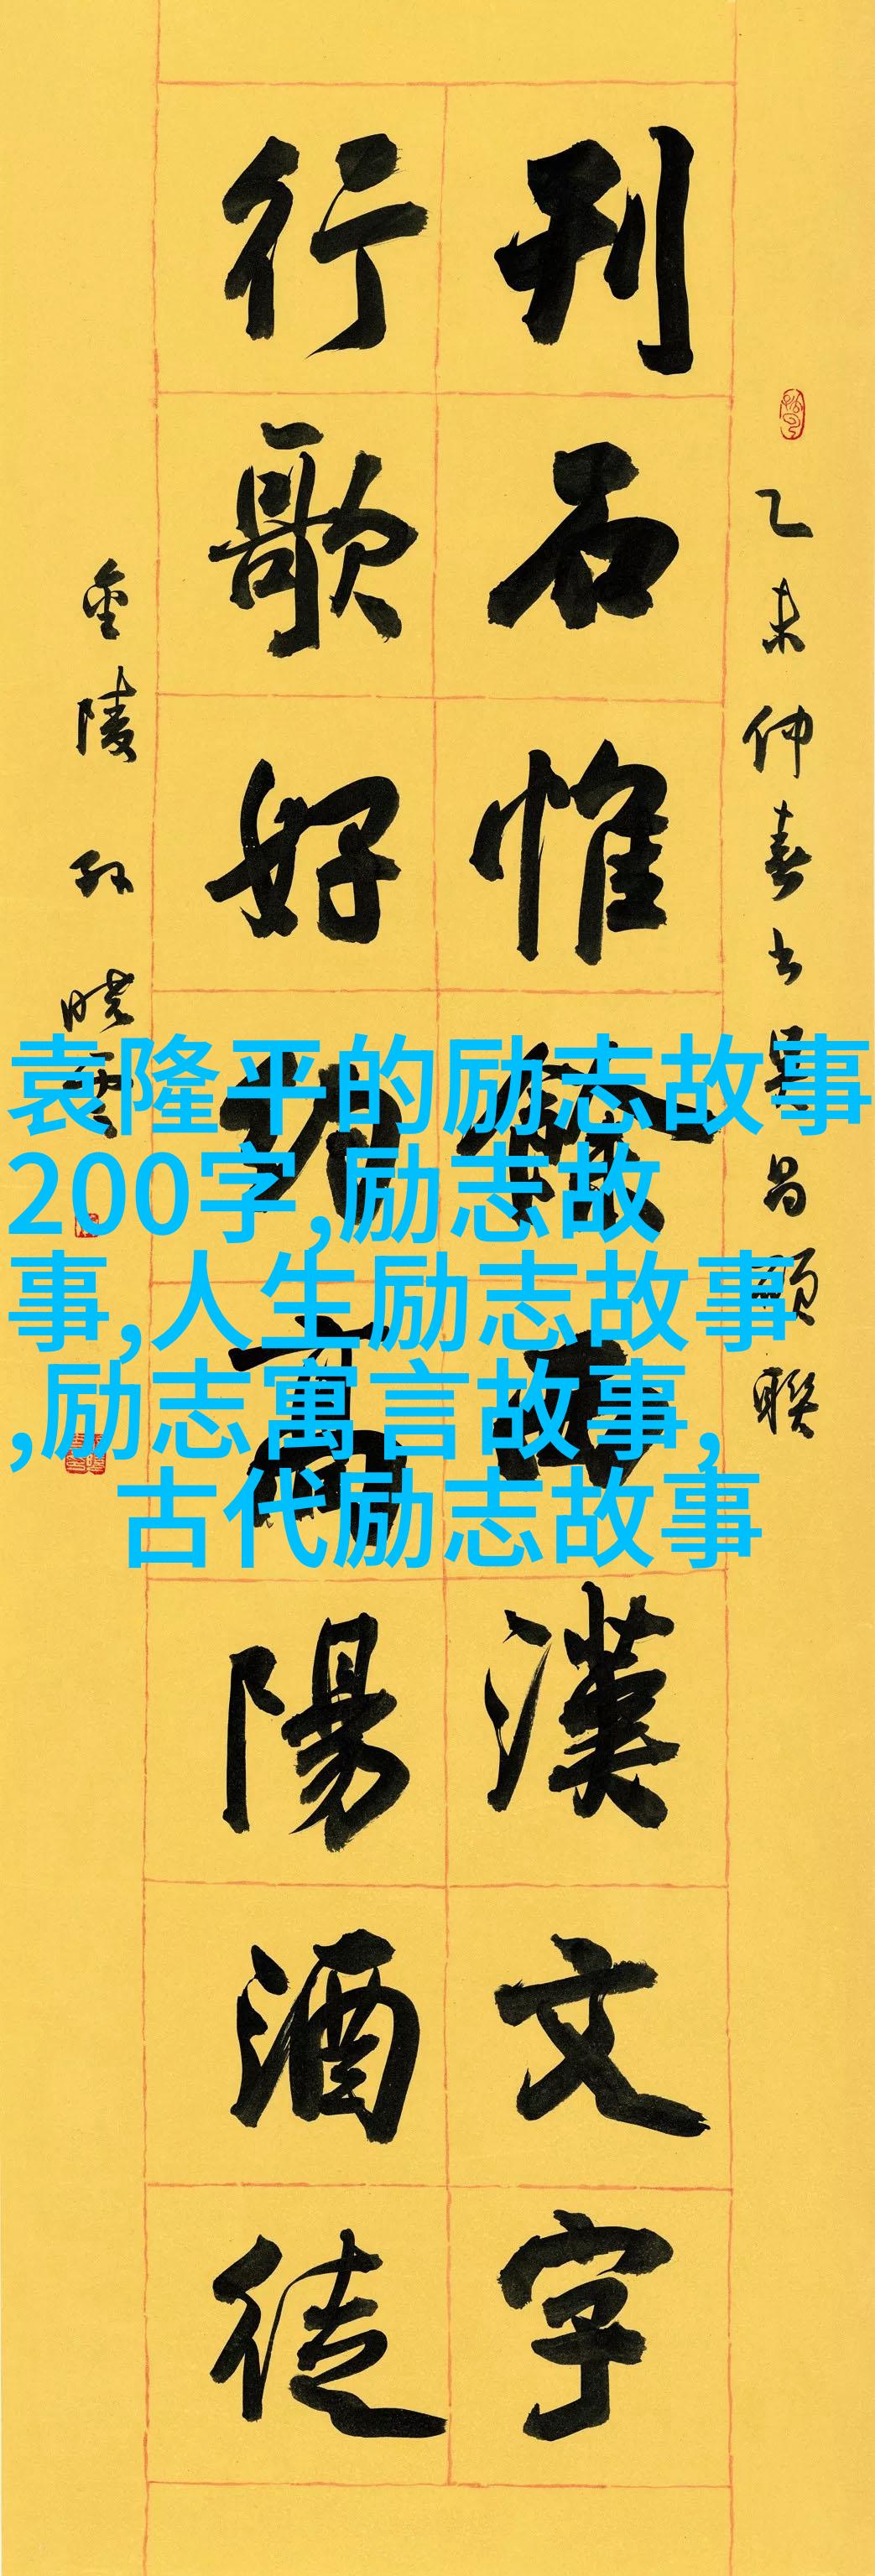 乙未仲春书吳昌碩聯
刊石惟餘漢文字
行歌好高陽酒徒
金陵孙晓雲
袁隆平的励志故事
200字,励志故
事,人生励志故事
,励志寓言故事,
古代励志故事